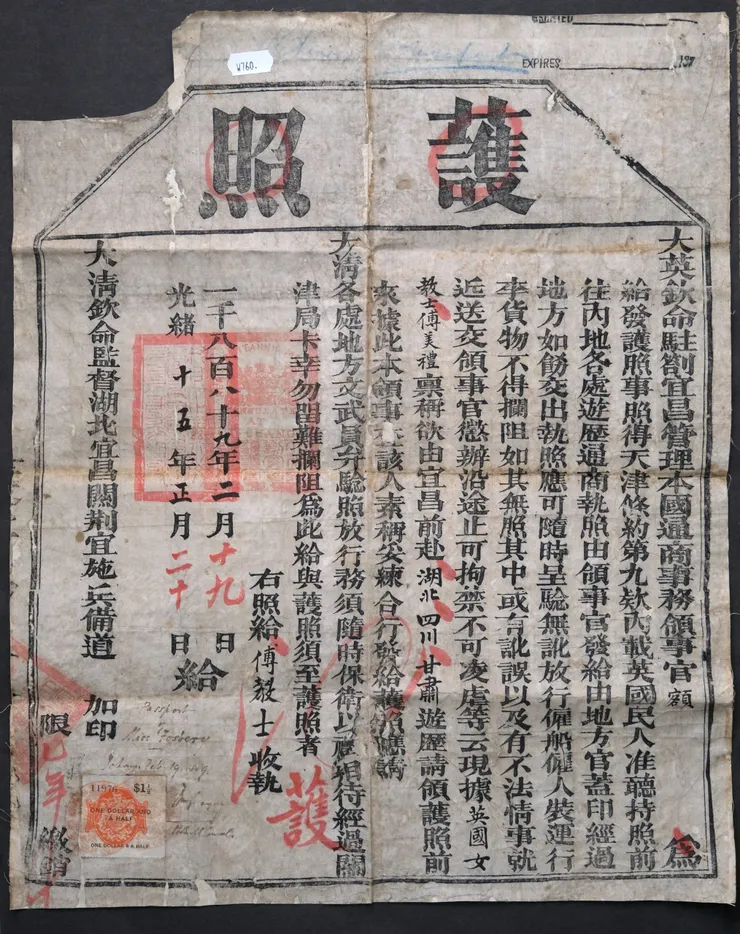 GRANTED
EXPIRES 187
V760.
護照
大英欽命駐劄宜昌管理本國通商事務領事官額 為
給發護照事照得天津條約第九欵內載英國民人准聽持照前
往內地各處遊歷通商執照由領事官發給由地方官蓋印經過
地方如飭交出執照應可隨時呈驗無訛放行僱船僱人裝運行
李貨物不得攔阻如其無照其中或有訛誤以及有不法情事就
近送交領事官懲辦沿途止可拘禁不可凌虐等云現據英國女
教士傅美禮稟稱欲由宜昌前赴湖北四川甘肅遊歷請領護照前
來據此本領事查該人素稱妥練合行發給護照應請
大清各處地方文武員弁驗照放行務須隨時保衛以禮相待經過關
津局卡幸勿留難攔阻為此給與護照須至護照者
護
右照給傅教士收執
一千八百八十九年二月十九日
光緒十五年正月二十日
給
大清欽命監督湖北宜昌關荊宜施兵備道 加印
限 年繳銷
Passport
Miss
Ichang Feb 19 1889
11976 $1½
ONE DOLLAR AND A HALF
ONE DOLLAR & A HALF